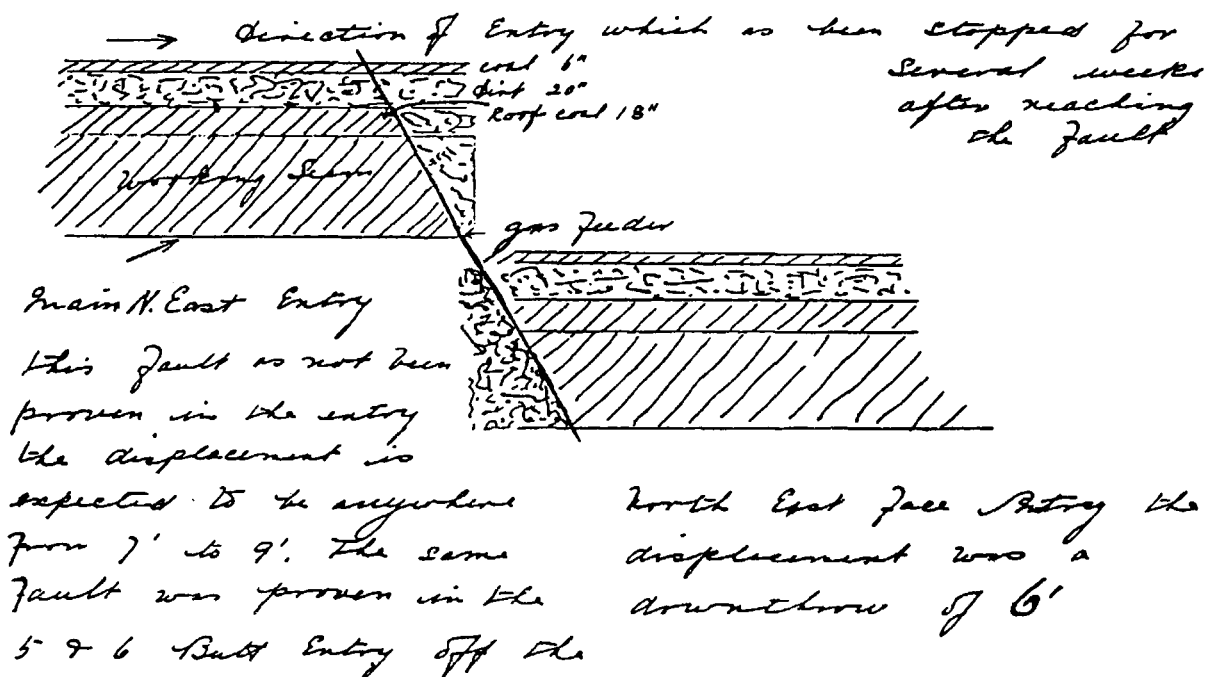 Direction of Entry which as been stopped for
several weeks
after reaching
the fault
coal 6"
dirt 20"
Roof coal 18"
working Seam
gas feeder
Main N. East Entry
this fault as not been
proven in the entry
the displacement is
expected to be anywhere
from 7' to 9'. The same
fault was proven in the
5 & 6 Butt Entry off the
North East Face Entry the
displacement was a
downthrow of 6'